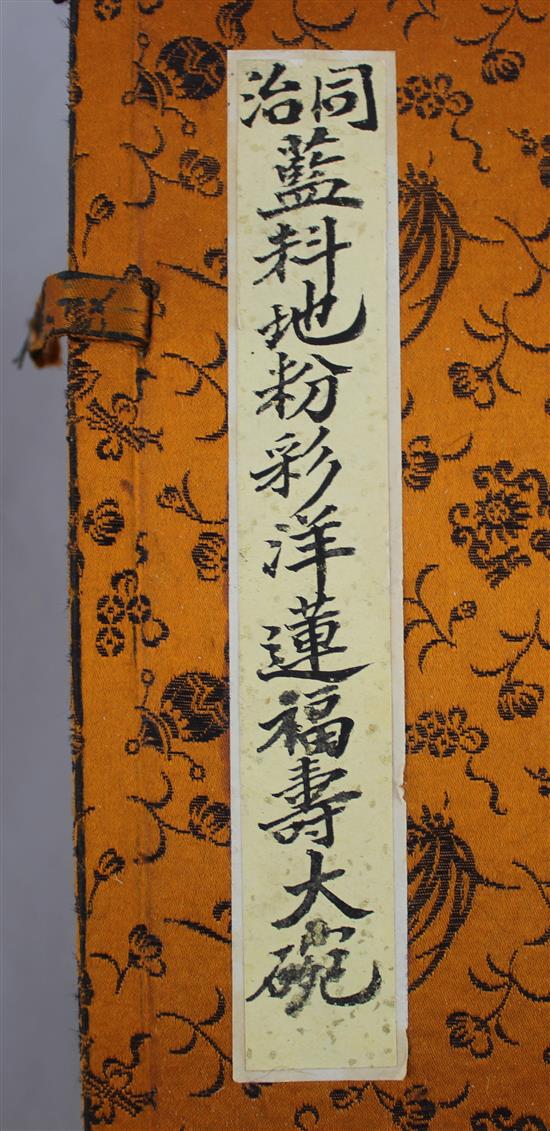 同治
藍料地粉彩洋蓮福壽大碗